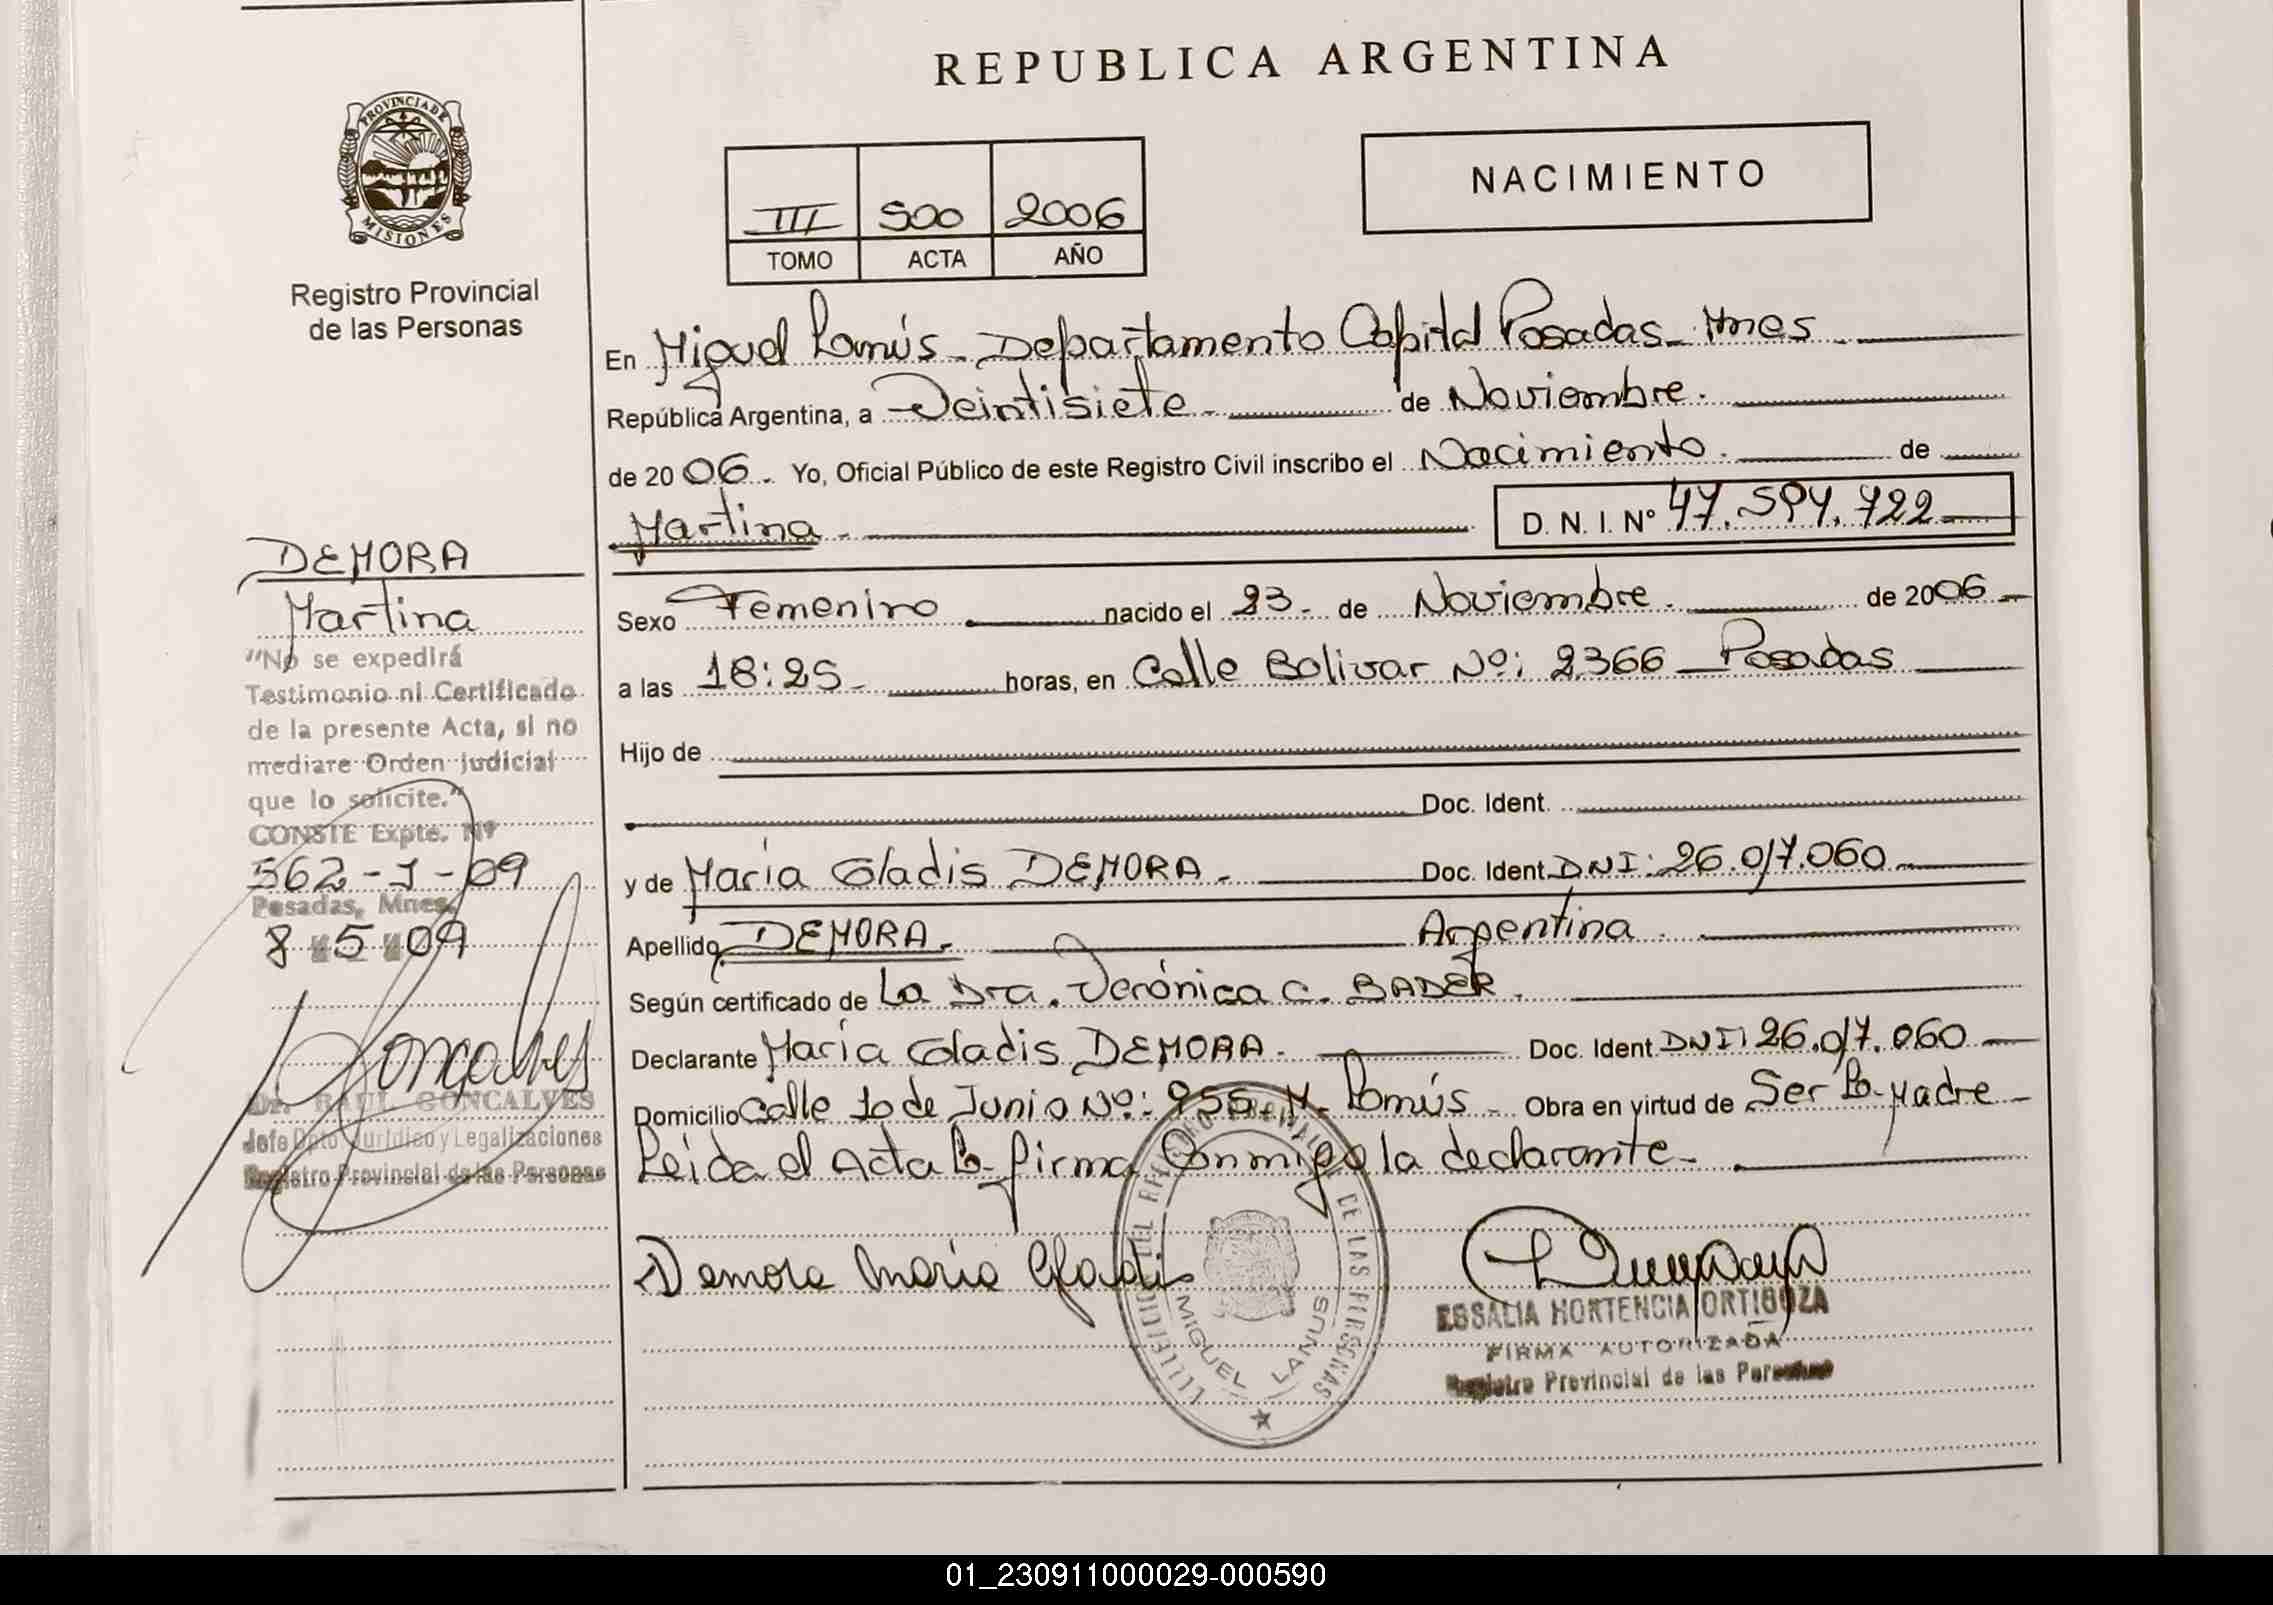 REPUBLICA ARGENTINA
PROVINCIA DE
MISIONES
Registro Provincial
de las Personas
NACIMIENTO
III 500 2006
TOMO ACTA AÑO
En Miguel Lanús - Departamento Capital Posadas - Mnes
República Argentina, a Veintisiete - de Noviembre.
de 2006. Yo, Oficial Público de este Registro Civil inscribo el Nacimiento. de
Martina - D. N. I. Nº 47.594.722
Sexo Femenino nacido el 23 - de Noviembre. de 2006 -
a las 18:25 - horas, en Calle Bolivar Nº: 2366 - Posadas
Hijo de
Doc. Ident.
y de María Gladis DEMORA - Doc. Ident. DNI: 26.017.060
Apellido DEMORA. Argentina.
Según certificado de La Dra. Verónica C. BADER.
Declarante María Gladis DEMORA - Doc. Ident. DNI: 26.017.060
Domicilio Calle 10 de Junio Nº: 955 - M. Lanús - Obra en virtud de Ser la Madre -
Leida el Acta la firma Conmigo la declarante -
Demora María Gladis
DE LAS PERSONAS
MIGUEL LANUS
HORTENCIA ORTIGOZA
FIRMA AUTORIZADA
Registro Provincial de las Personas
DEMORA
Martina
"No se expedirá
Testimonio ni Certificado
de la presente Acta, si no
mediare Orden Judicial
que lo solicite."
CONSTE Expte. Nº
562-J-09
Posadas, Mnes.
8 5 09
Goncalves
Dr. RAUL GONCALVES
Jefe Dpto Jurídico y Legalizaciones
Registro Provincial de las Personas
01_230911000029-000590